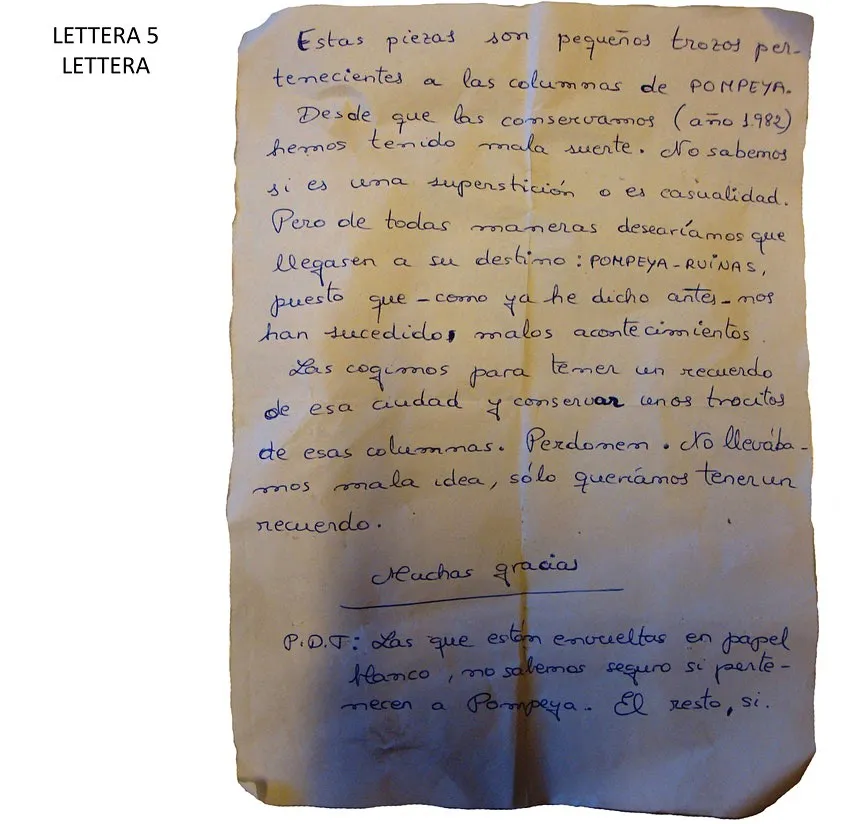 LETTERA 5
LETTERA
Estas piezas son pequeños trozos per-
tenecientes a las columnas de POMPEYA.
Desde que las conservamos (año 1.982)
hemos tenido mala suerte. No sabemos
si es una superstición o es casualidad.
Pero de todas maneras desearíamos que
llegasen a su destino: POMPEYA-RUÍNAS,
puesto que - como ya he dicho antes - nos
han sucedido, malos acontecimientos.
Las cogimos para tener un recuerdo
de esa ciudad y conservar unos trocitos
de esas columnas. Perdonen. No llevába-
mos mala idea, sólo queríamos tener un
recuerdo.
Muchas gracias
P.D.T: Las que están envueltas en papel
blanco, no sabemos seguro si perte-
necen a Pompeya. El resto, si.